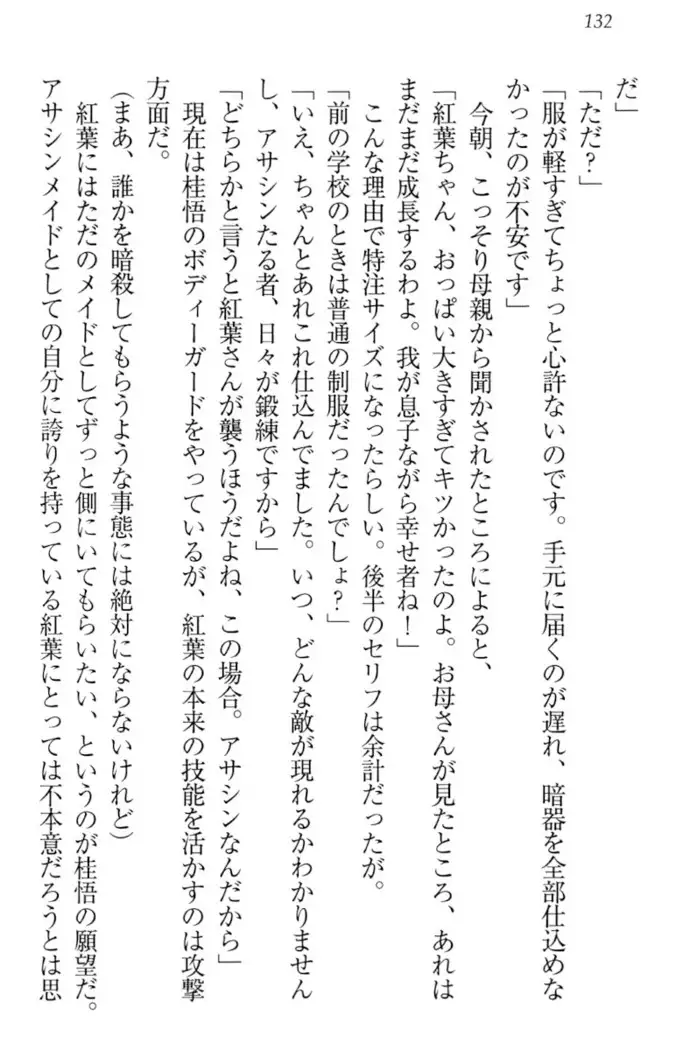 132
だ」
「ただ？」
「服が軽すぎてちょっと心許ないのです。手元に届くのが遅れ、暗器を全部仕込めな
かったのが不安です」
今朝、こっそり母親から聞かされたところによると、
「紅葉ちゃん、おっぱい大きすぎてキツかったのよ。お母さんが見たところ、あれは
まだまだ成長するわよ。我が息子ながら幸せ者ね！」
こんな理由で特注サイズになったらしい。後半のセリフは余計だったが。
「前の学校のときは普通の制服だったんでしょ？」
「いえ、ちゃんとあれこれ仕込んでました。いつ、どんな敵が現れるかわかりません
し、アサシンたる者、日々が鍛練ですから」
「どちらかと言うと紅葉さんが襲うほうだよね、この場合。アサシンなんだから」
現在は桂悟のボディーガードをやっているが、紅葉の本来の技能を活かすのは攻撃
方面だ。
（まあ、誰かを暗殺してもらうような事態には絶対にならないけれど）
紅葉にはただのメイドとしてずっと側にいてもらいたい、というのが桂悟の願望だ。
アサシンメイドとしての自分に誇りを持っている紅葉にとっては不本意だろうとは思